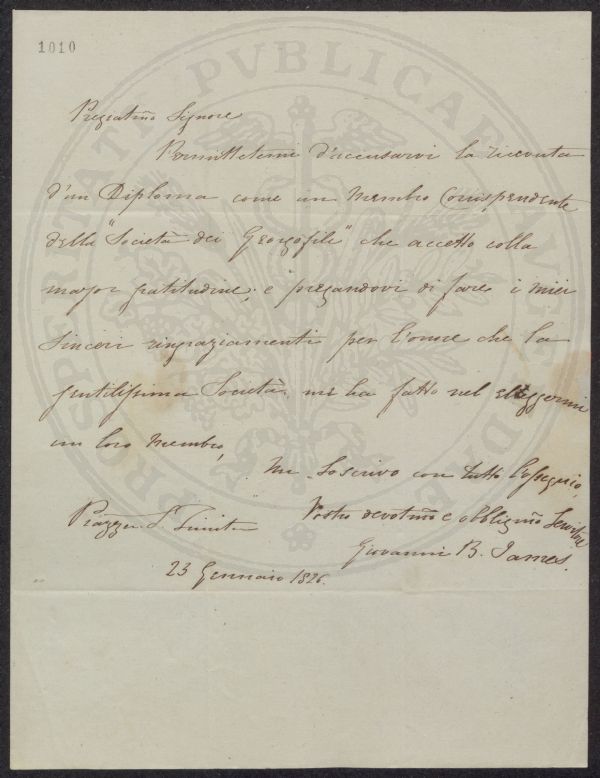 1010
PROSPERITATI PVBLICAE AVGENDAE
Pregiatmo Signore
Permettetemi d'accusarvi la ricevuta
d'un Diploma come un Membro Corrispondente
della "Società dei Georgofili" che accetto colla
mayor gratitudine; e pregandovi di fare i miei
sinceri ringraziamenti per l'onore che la
gentilissima Società mi ha fatto nel eleggermi
un loro Membro,
Mi soscrivo con tutto l'ossequio,
Vostro devotmo e obbligmo Servitore
Giovanni B. James.
Piazza S. Trinita
23 Gennaio 1826.